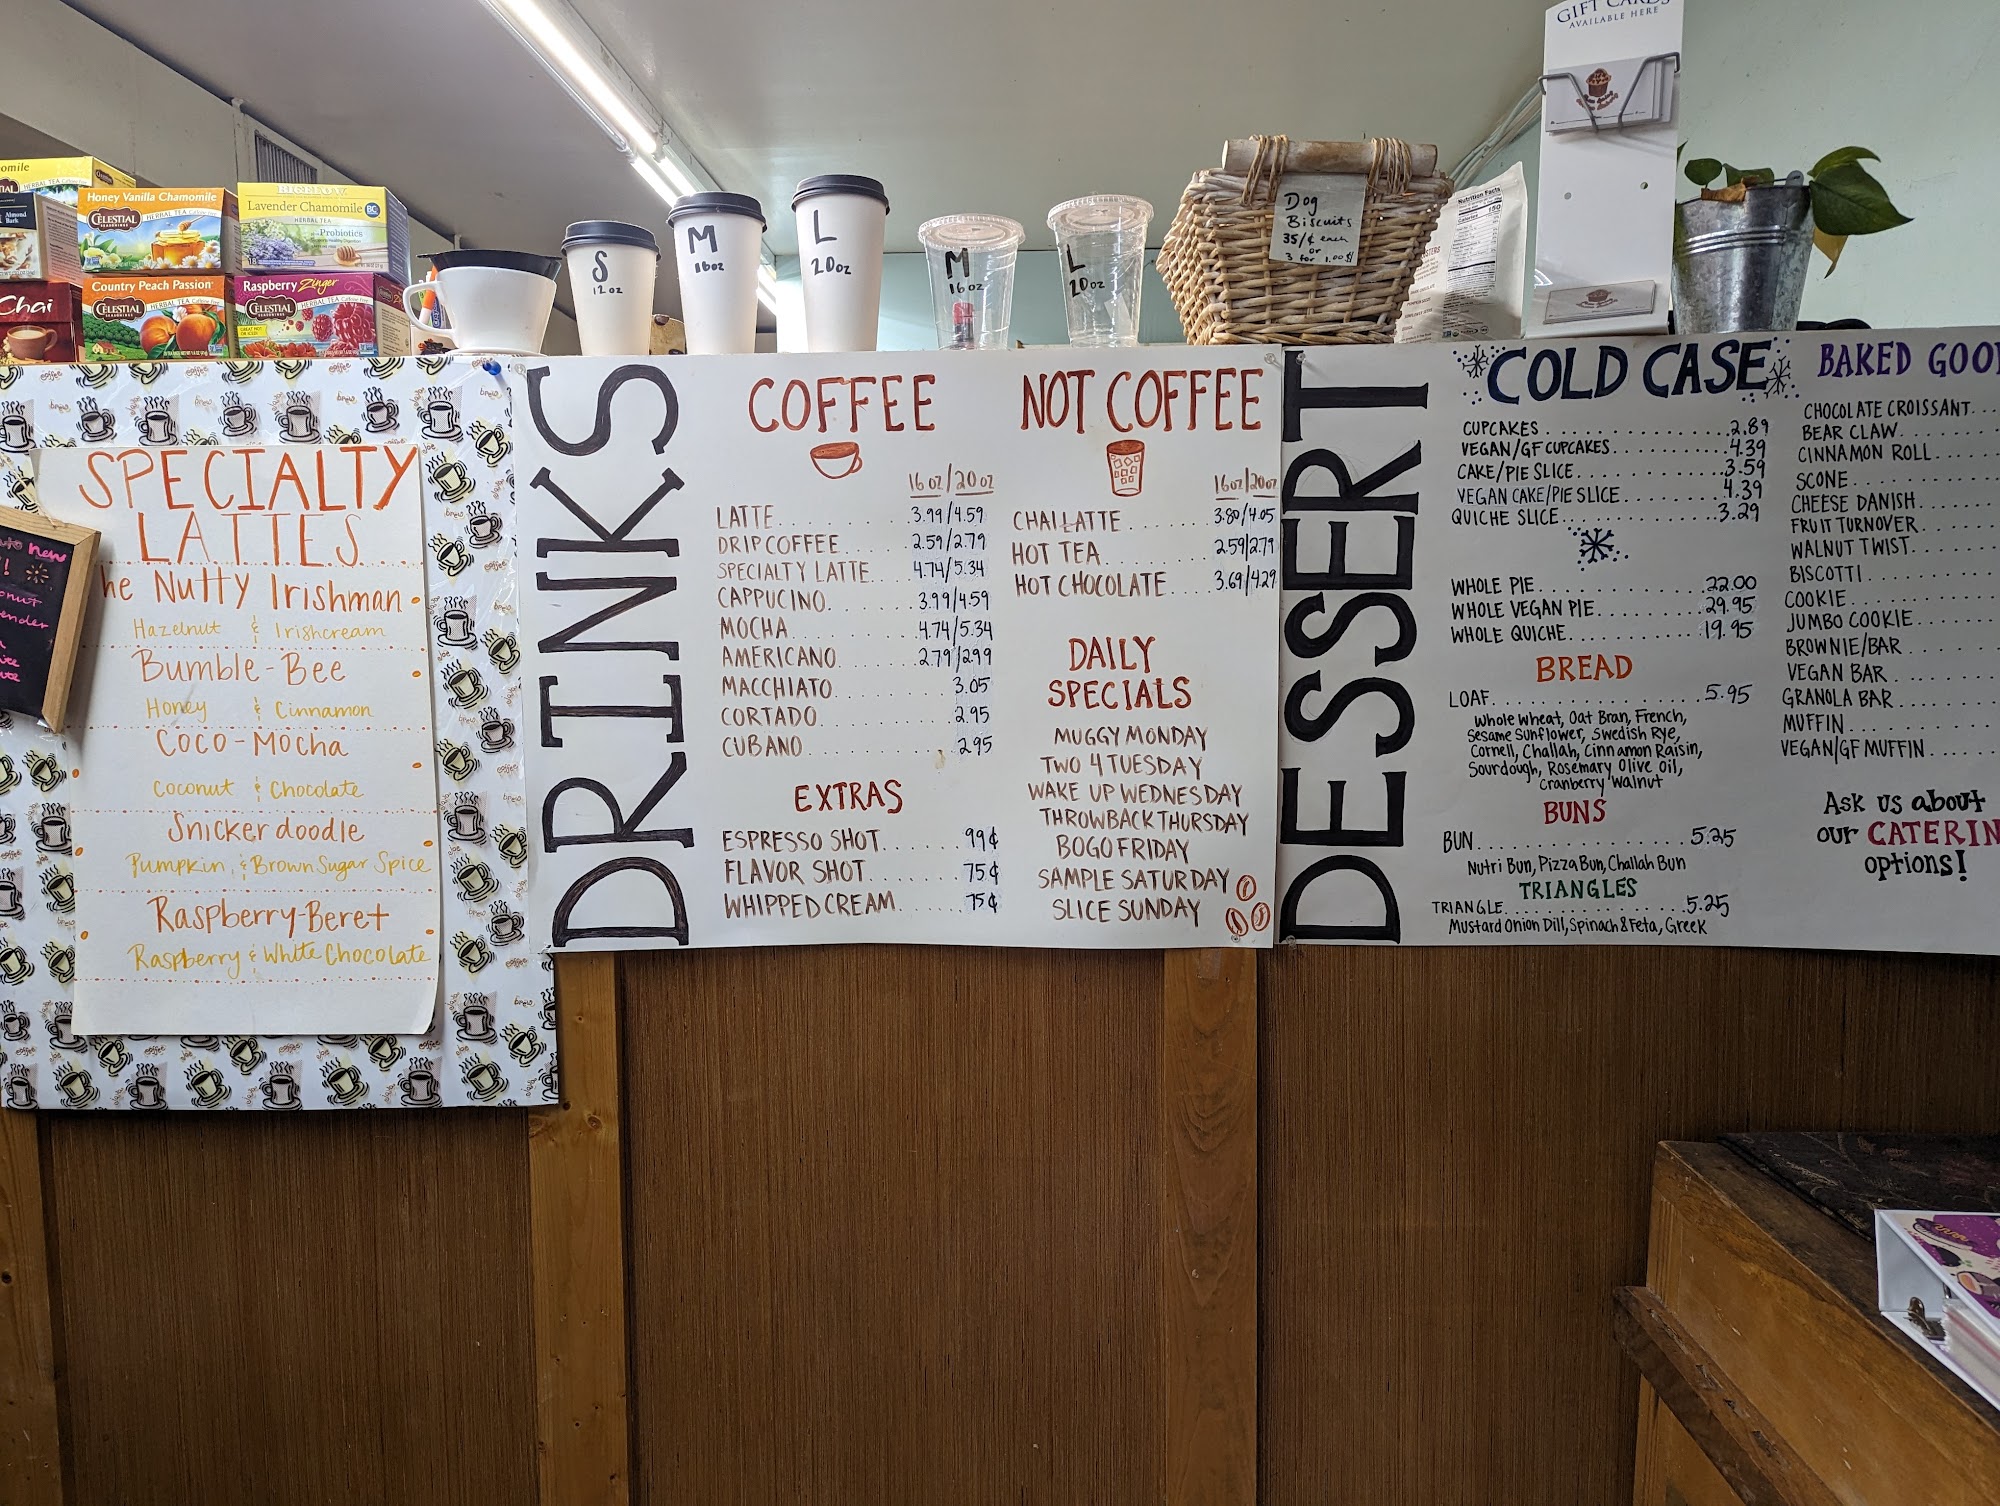 GIFT CARDS
AVAILABLE HERE
Honey Vanilla Chamomile
CELESTIAL
SEASONINGS
HERBAL TEA Caffeine Free
BIGELOW
Lavender Chamomile
HERBAL TEA
Probiotics
Country Peach Passion
CELESTIAL
HERBAL TEA Caffeine Free
Raspberry Zinger
CELESTIAL
HERBAL TEA Caffeine Free
Chai
S
12 oz
M
16 oz
L
20 oz
M
16 oz
L
20 oz
Dog
Biscuits
35/¢ each
or
3 for 1.00$
Nutrition Facts
SPECIALTY
LATTES
he Nutty Irishman
Hazelnut & Irishcream
Bumble-Bee
Honey & Cinnamon
Coco-Mocha
Coconut & Chocolate
Snickerdoodle
Pumpkin & Brown Sugar Spice
Raspberry-Beret
Raspberry & White Chocolate
new
DRINKS
COFFEE
16 oz/20 oz
LATTE 3.99/4.59
DRIP COFFEE 2.59/2.79
SPECIALTY LATTE 4.74/5.34
CAPPUCINO 3.99/4.59
MOCHA 4.74/5.34
AMERICANO 2.79/2.99
MACCHIATO 3.05
CORTADO 2.95
CUBANO 2.95
EXTRAS
ESPRESSO SHOT 99¢
FLAVOR SHOT 75¢
WHIPPED CREAM 75¢
NOT COFFEE
16oz/20oz
CHAI LATTE 3.80/4.05
HOT TEA 2.59/2.79
HOT CHOCOLATE 3.69/4.29
DAILY
SPECIALS
MUGGY MONDAY
TWO 4 TUESDAY
WAKE UP WEDNESDAY
THROWBACK THURSDAY
BOGO FRIDAY
SAMPLE SATURDAY
SLICE SUNDAY
DESSERT
COLD CASE
CUPCAKES 2.89
VEGAN/GF CUPCAKES 4.39
CAKE/PIE SLICE 3.59
VEGAN CAKE/PIE SLICE 4.39
QUICHE SLICE 3.29
WHOLE PIE 22.00
WHOLE VEGAN PIE 29.95
WHOLE QUICHE 19.95
BREAD
LOAF 5.95
Whole Wheat, Oat Bran, French,
Sesame Sunflower, Swedish Rye,
Cornell, Challah, Cinnamon Raisin,
Sourdough, Rosemary Olive Oil,
Cranberry Walnut
BUNS
BUN 5.25
Nutri Bun, Pizza Bun, Challah Bun
TRIANGLES
TRIANGLE 5.25
Mustard Onion Dill, Spinach & Feta, Greek
BAKED GOO
CHOCOLATE CROISSANT
BEAR CLAW
CINNAMON ROLL
SCONE
CHEESE DANISH
FRUIT TURNOVER
WALNUT TWIST
BISCOTTI
COOKIE
JUMBO COOKIE
BROWNIE/BAR
VEGAN BAR
GRANOLA BAR
MUFFIN
VEGAN/GF MUFFIN
Ask us about
our CATERIN
options!